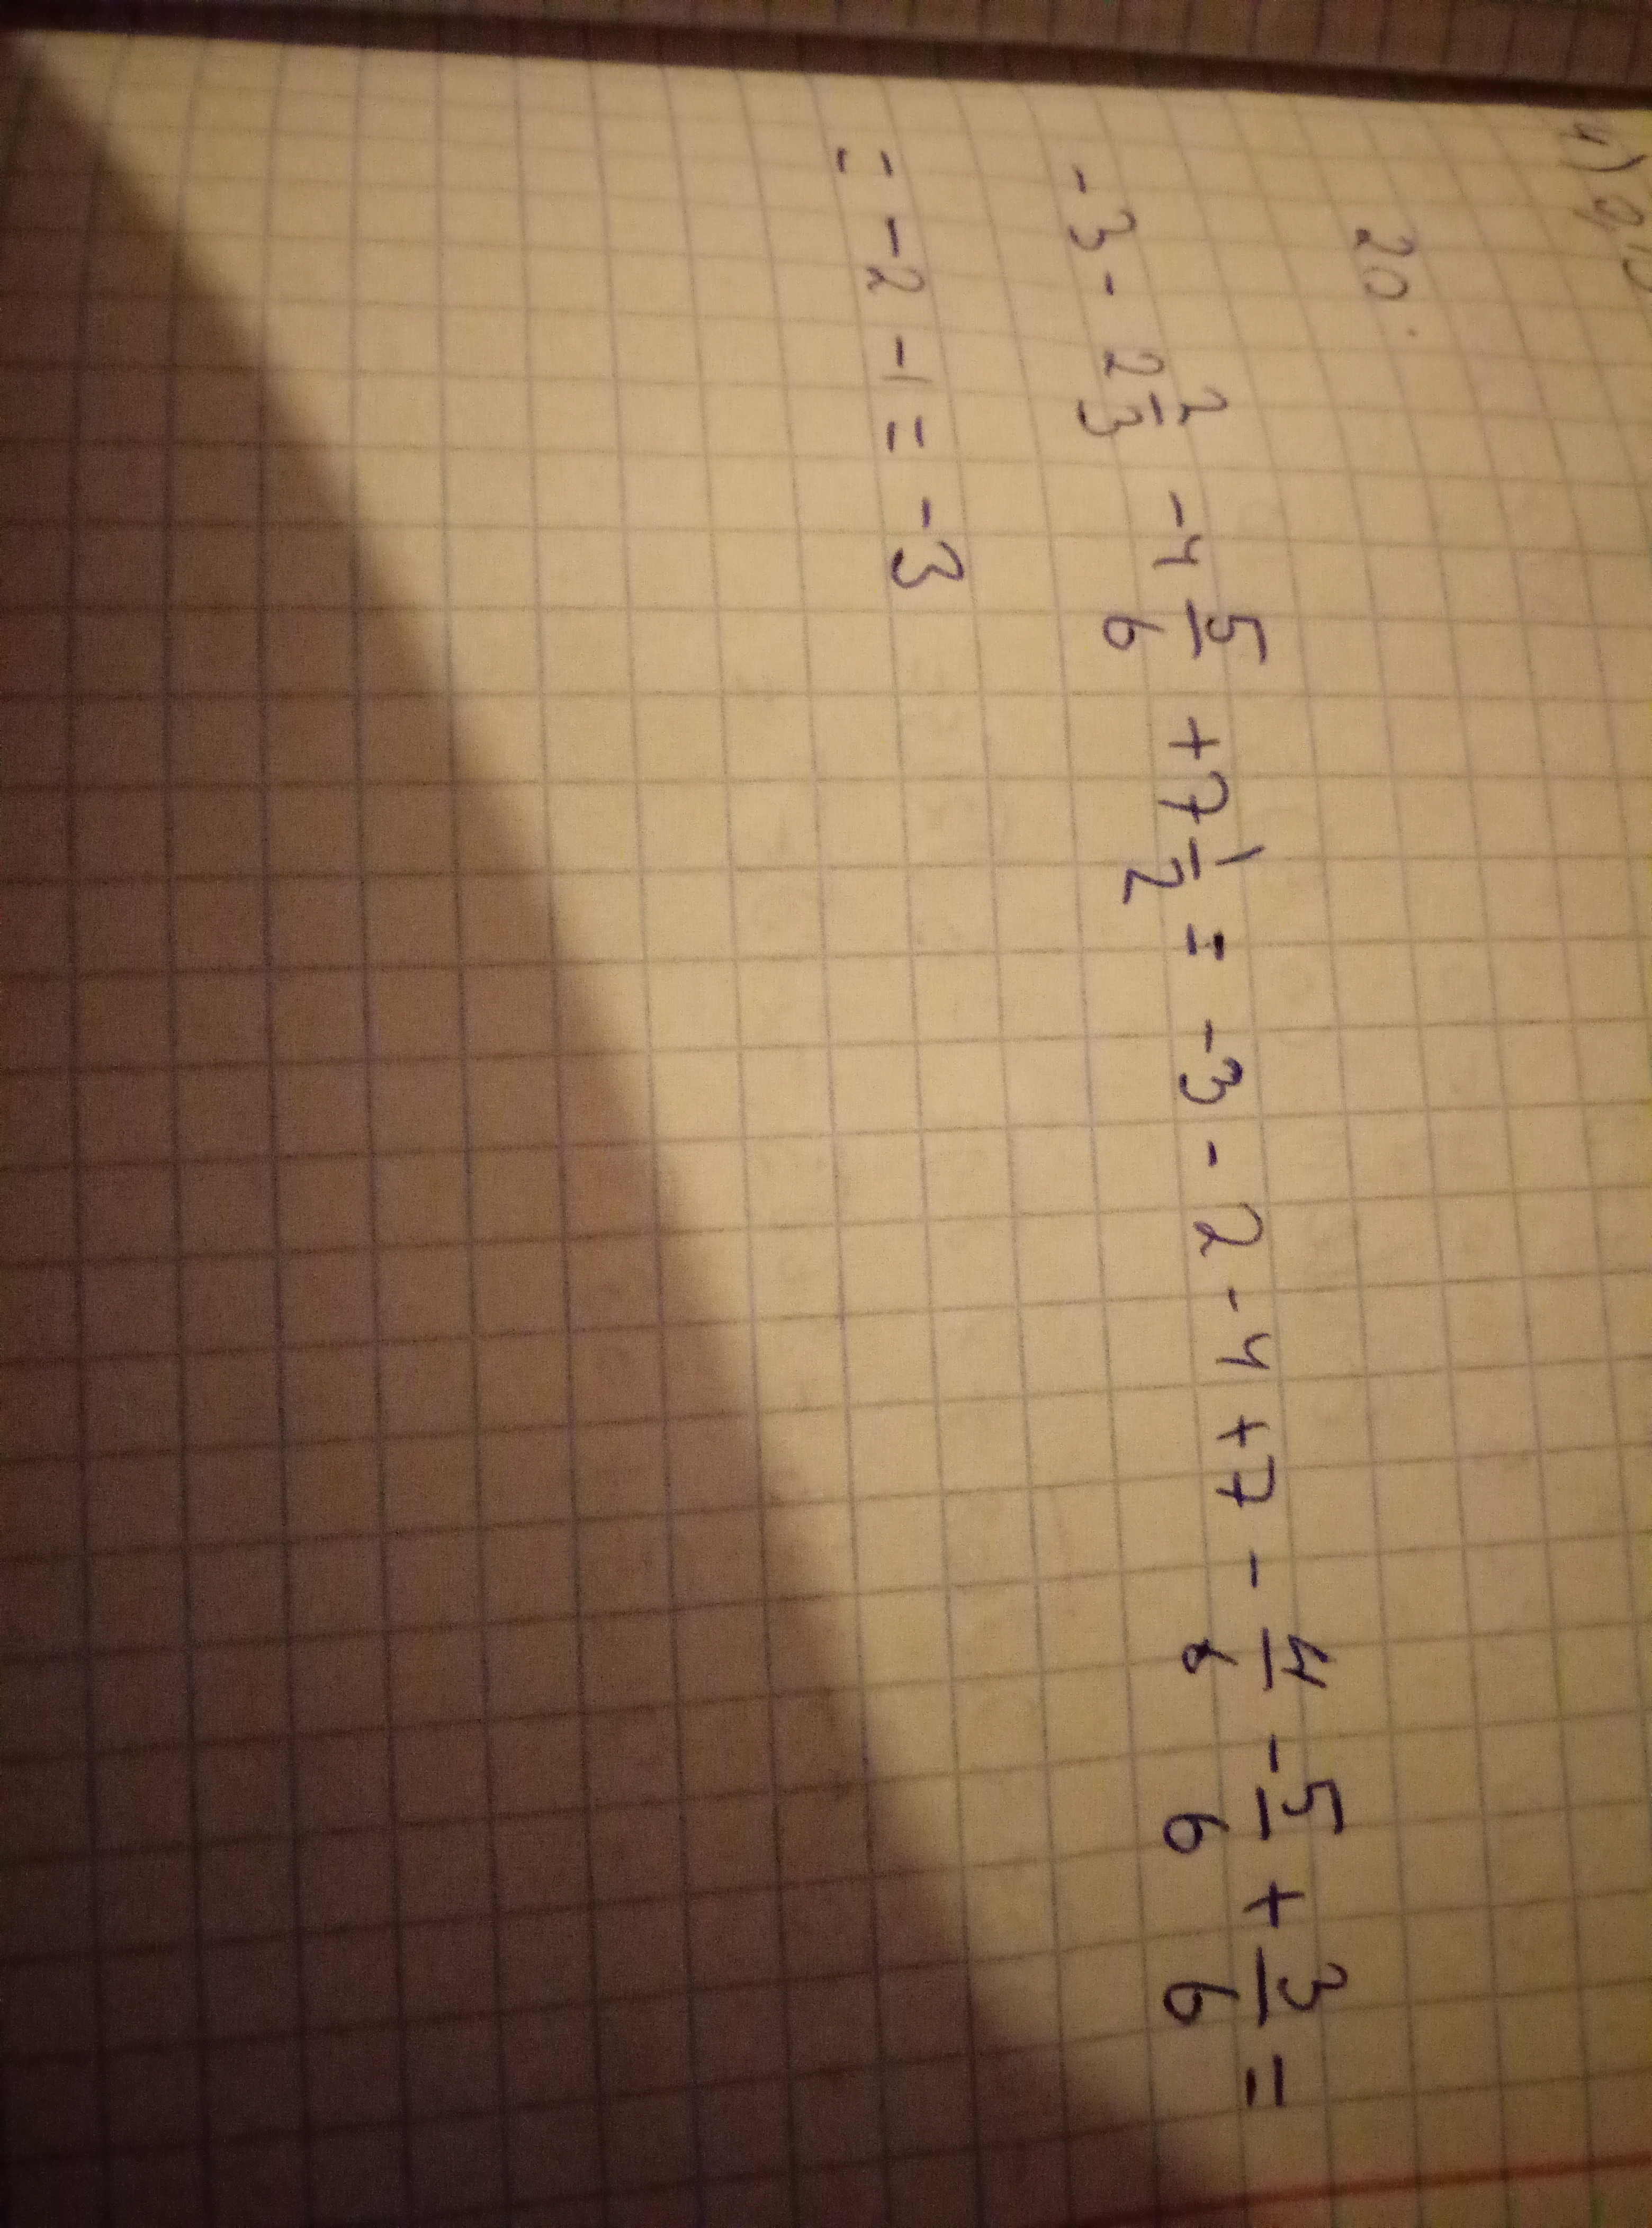 20.
-3 - 2 2/3 - 4 5/6 + 7 1/2 = -3 - 2 - 4 + 7 - 4/6 - 5/6 + 3/6 =
= -2 - 1 = -3